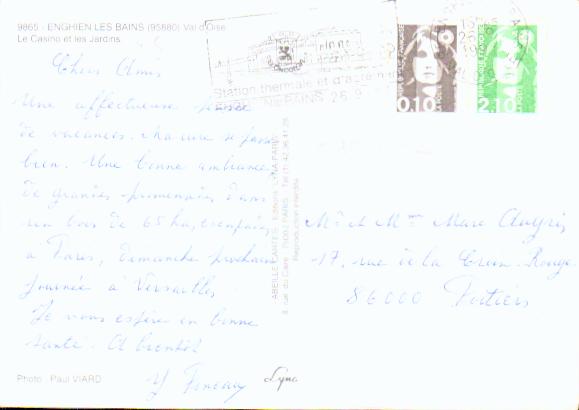 9865 - ENGHIEN LES BAINS (95880) Val d'Oise
Le Casino et les Jardins
Station thermale et d'agrément
BAINS 26.9
0,10
2,10
Chers Amis
Une affectueuse pensée
de vacances. Ma cure se passe
bien. Une bonne ambiance
de grandes promenades dans
un bois de 65 ha,
à Paris, dimanche prochain
journée à Versailles.
Je vous espère en bonne
santé. A bientôt
Mr et Mme Marc
17, rue de la Croix-Rouge
86000 Poitiers
ABEILLE-CARTES - Editions LYNA-PARIS
8, rue du Caire 75002 PARIS - Tél. (1) 42.36.41.28
Reproduction interdite
Photo : Paul VIARD
Lyna